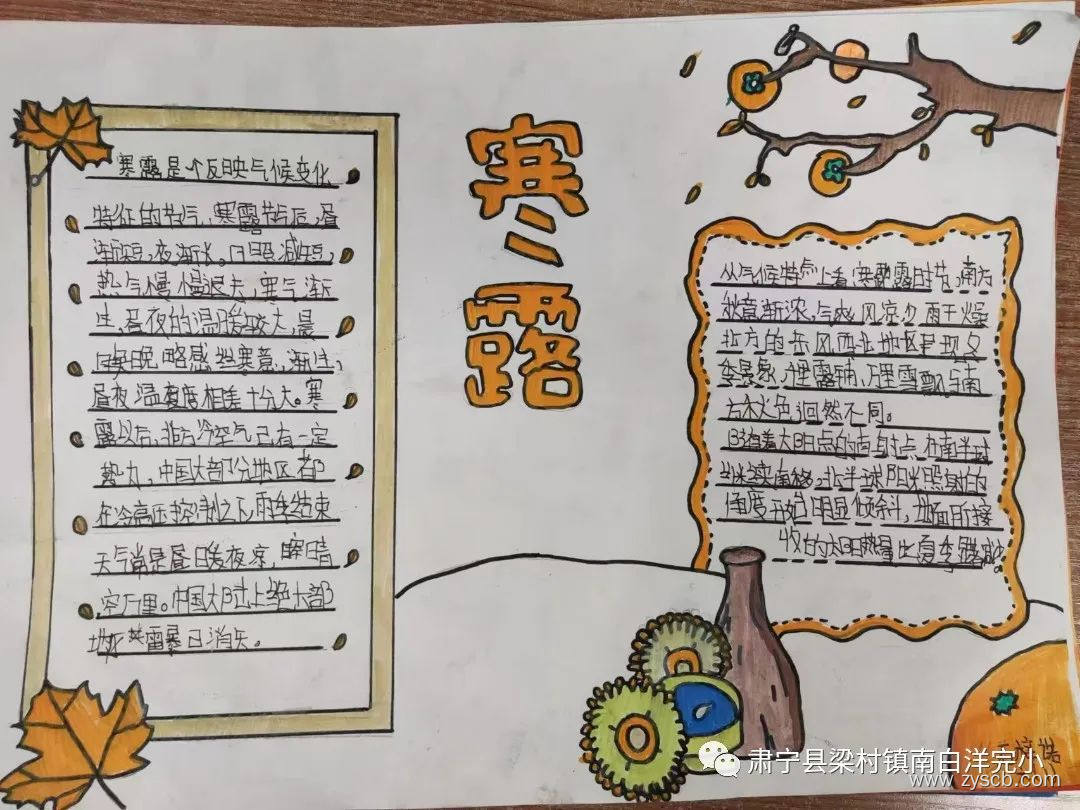 寒露是个反映气候变化
特征的节气,寒露节气后,昼
渐短,夜渐长,日照减短,
热气慢慢退去,寒气渐
生,昼夜的温较大,晨
晚略感丝寒意,渐
昼夜温度相差十分大。寒
露以后,北方冷空气已有一定
势力,中国大部分地区都
在冷高压控制之下,雨季结束
天气常是昼暖夜凉,晴
空万里。中国大陆上绝大部
地区雷暴已消失。
寒
露
从气候特点上看,寒露时节,南方
秋意渐浓,气爽风凉,少雨干燥
北方的东风西北地区
季景象,雪飘与南
方秋色迥然不同。
太阳点的南半球
继续南移,北半球阳光照射的
角度开始明显倾斜,地面所接
收的太阳热量比夏季显
肃宁县梁村镇南白洋完小
www.zyscb.com